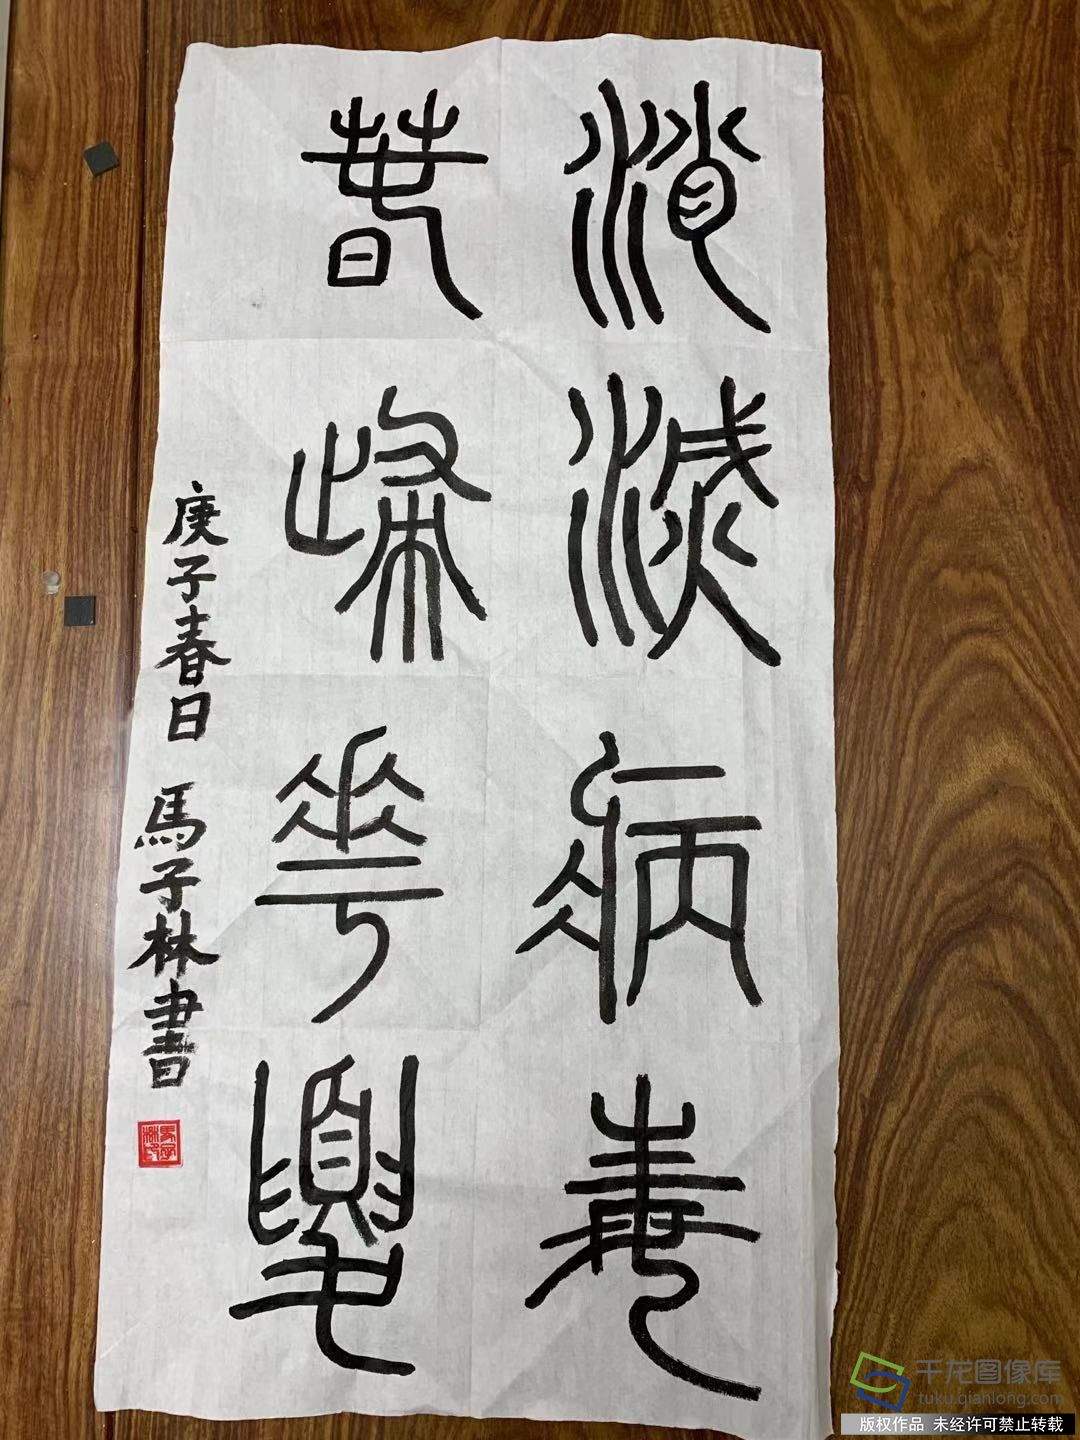 消滅病毒
春歸華夏
庚子春日 馬子林書
千龙图像库
tuku.qianlong.com
版权作品 未经许可禁止转载